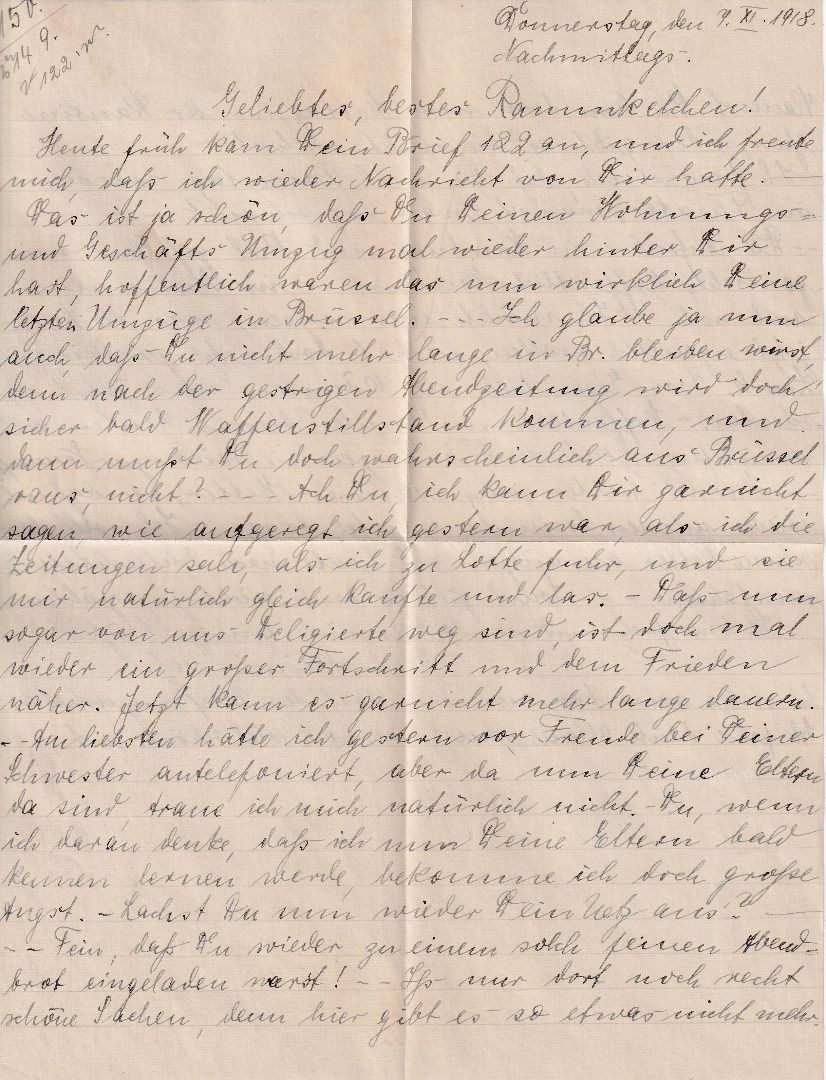 150.
149.
v 122. w.
Donnerstag, den 7. XI. 1918.
Nachmittags.
Geliebtes, bestes Ranunkelchen!
Heute früh kam Dein Brief 122 an, und ich freute
mich, daß ich wieder Nachricht von Dir hatte. —
Das ist ja schön, daß Du Deinen Wohnungs=
und Geschäfts Umzug mal wieder hinter Dir
hast, hoffentlich waren das nun wirklich Deine
letzten Umzüge in Brüssel. - - - Ich glaube ja nun
auch, daß Du nicht mehr lange in Br. bleiben wirst,
denn nach der gestrigen Abendzeitung wird doch
sicher bald Waffenstillstand kommen, und
dann mußt Du doch wahrscheinlich aus Brüssel
raus, nicht? - - - Ach Du, ich kann Dir garnicht
sagen, wie aufgeregt ich gestern war, als ich die
Zeitungen sah, als ich zu Lotte fuhr, und sie
mir natürlich gleich kaufte und las. - Daß nun
sogar von uns Deligierte weg sind, ist doch mal
wieder ein großer Fortschritt und dem Frieden
näher. Jetzt kann es garnicht mehr lange dauern.
- - Am liebsten hätte ich gestern vor Freude bei Deiner
Schwester antelefoniert, aber da nun Deine Eltern
da sind, traue ich mich natürlich nicht. - Du, wenn
ich daran denke, daß ich nun Deine Eltern bald
kennen lernen werde, bekomme ich doch große
Angst. - Lachst Du nun wieder Dein aus? —
- - Fein, daß Du wieder zu einem solch feinen Abend=
brot eingeladen warst! - - Iß nur dort noch recht
schöne Sachen, denn hier gibt es so etwas nicht mehr.